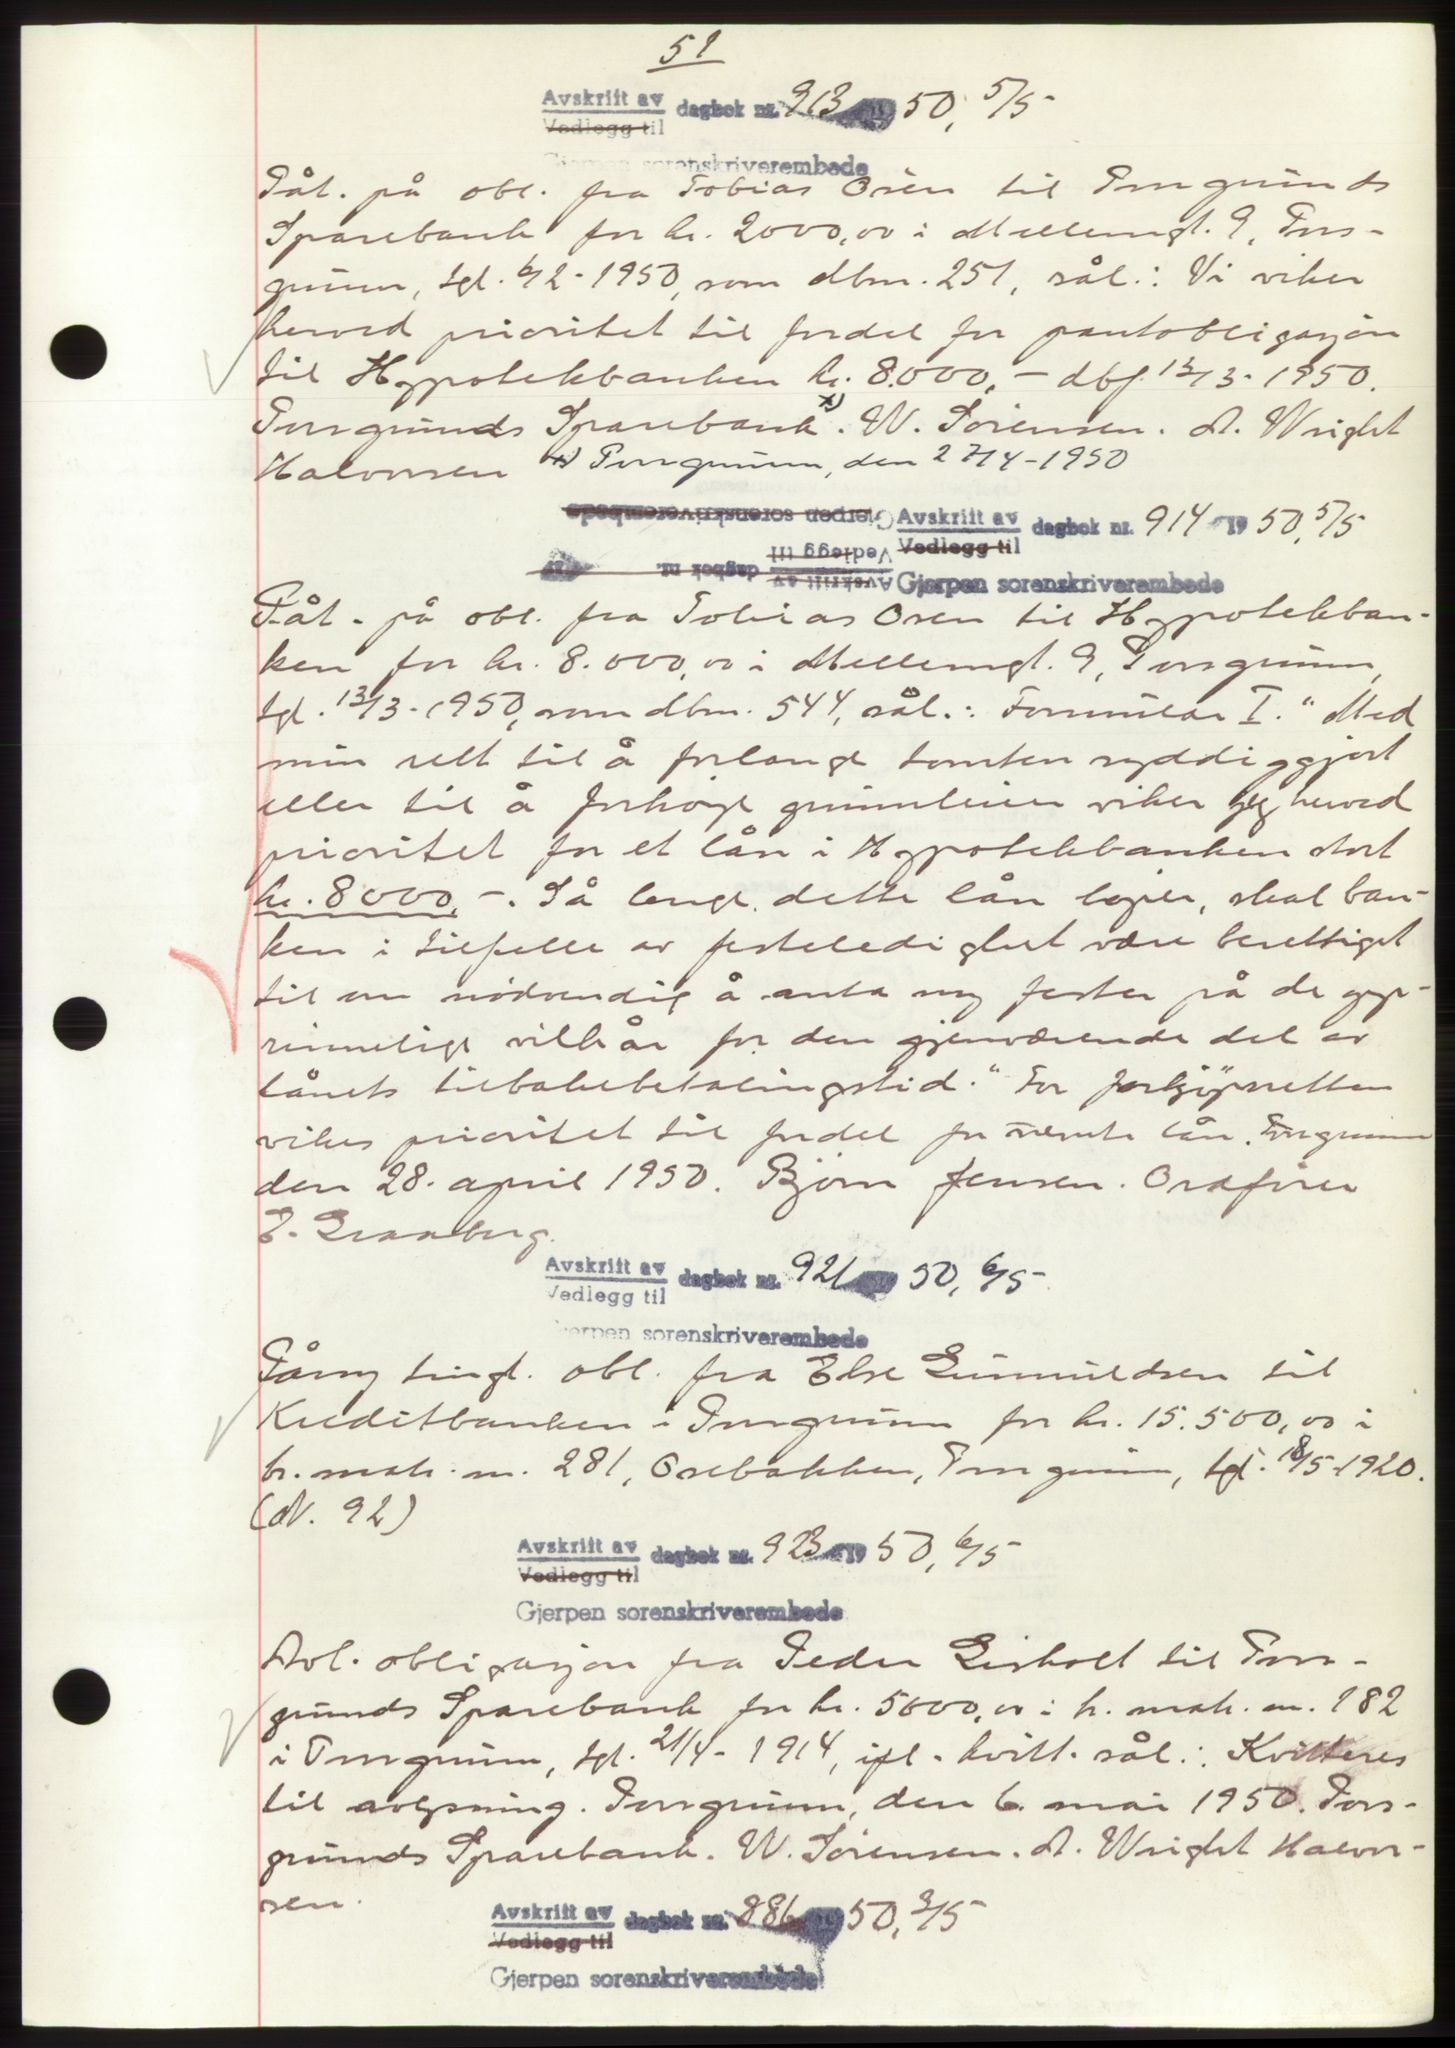 51
Avskrift av dagbok nr. 913 50, 5/5
Vedlegg til
Gjerpen sorenskriverembede
Påt. på obl. fra Tobias Osen til Porsgrunds
Sparebank for kr. 2000,00 i Mellemgt. 9, Pors-
grunn, tgl. 6/2-1950, som dbnr. 251, sål.: Vi viker
herved prioritet til fordel for pantobligasjon
til Hypotekbanken kr. 8.000,- dbf. 13/3-1950.
Porsgrunds Sparebank x). W. Sørensen. A. Wright
Halvorsen x) Porsgrunn, den 27/4-1950
Gjerpen sorenskriverembede Avskrift av dagbok nr. 914 19 50, 5/5
Vedlegg til Vedlegg til
Avskrift av dagbok nr. 19 Gjerpen sorenskriverembede
Påt. på obl. fra Tobias Osen til Hypotekban-
ken for kr. 8.000,00 i Mellemgt. 9, Porsgrunn,
tgl. 13/3-1950, som dbnr. 544, sål.: Formular I. "Med
min rett til å forlange tomten ryddiggjort
eller til å forhøye grunnleien viker jeg herved
prioritet for et lån i Hypotekbanken stort
kr. 8000,-. Så lenge dette lån løper, skal ban-
ken i tilfelle av festeledighet være berettiget
til om nødvendig å anta ny fester på de opp-
rinnelige vilkår for den gjenværende del av
lånets tilbakebetalingstid." For forkjøpsretten
vikes prioritet til fordel for nevnte lån. Porsgrunn
den 28. april 1950. Bjørn Jensen. Ordfører
E. Graaberg.
Avskrift av dagbok nr. 921 50, 6/5
Vedlegg til
Gjerpen sorenskriverembede
På ny tingl. obl. fra Else Gunnuldsen til
Kreditbanken i Porsgrunn for kr. 15.500,00 i
h. matr. nr. 281, Osebakken, Porsgrunn, tgl. 18/5-1920.
(N. 92)
Avskrift av dagbok nr. 923 19 50, 6/5
Vedlegg til
Gjerpen sorenskriverembede
Avl. obligasjon fra Peder Gisholt til Pors-
grunds Sparebank for kr. 5000,00 i h. matr. nr. 182
i Porsgrunn, tgl. 21/4-1914, ifl. kvitt. sål.: Kvitteres
til avlysning. Porsgrunn, den 6. mai 1950. Pors-
grunds Sparebank. W. Sørensen. A. Wright Halvor-
sen.
Avskrift av dagbok nr. 886 50, 3/5
Vedlegg til
Gjerpen sorenskriverembede